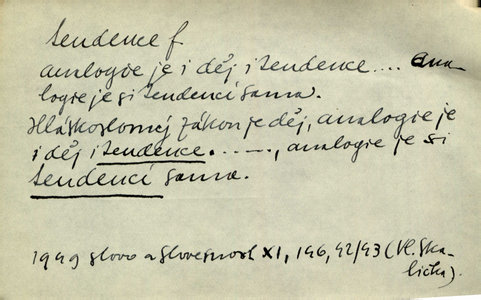 tendence f
analogie je i děj i tendence.... ana-
logie je si tendencí sama.
Hláskoslovný zákon je děj, analogie je
i děj i tendence. - . - - -, analogie je si
tendencí sama.
1949 Slovo a Slovesnost XI, 146, 42/43 (Vl. Ska-
lička).